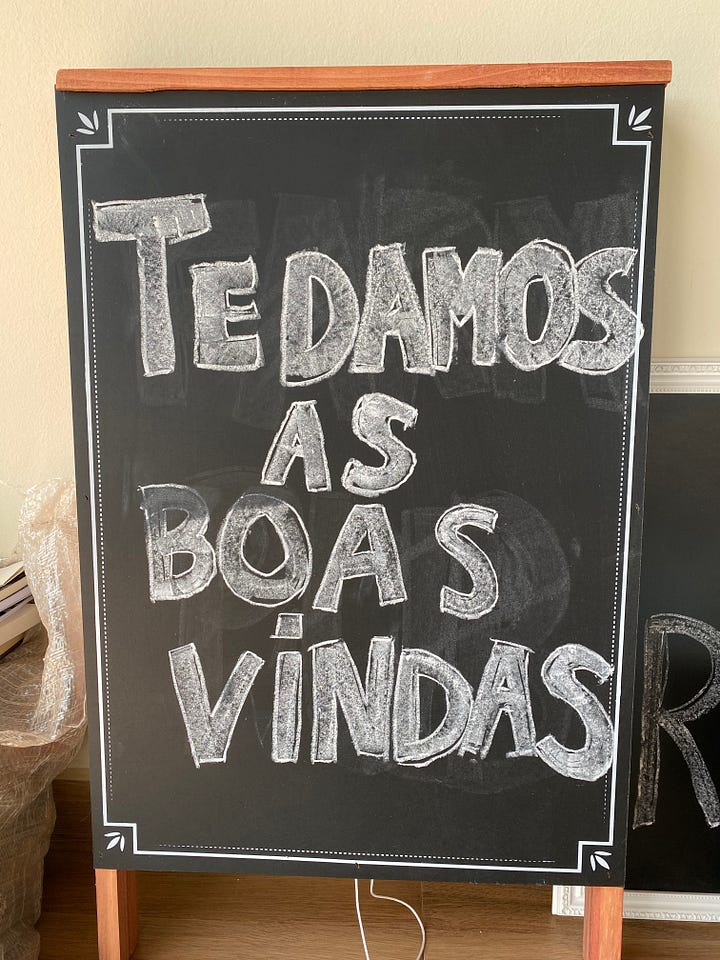 TE DAMOS
AS
BOAS
ViNDAS
R